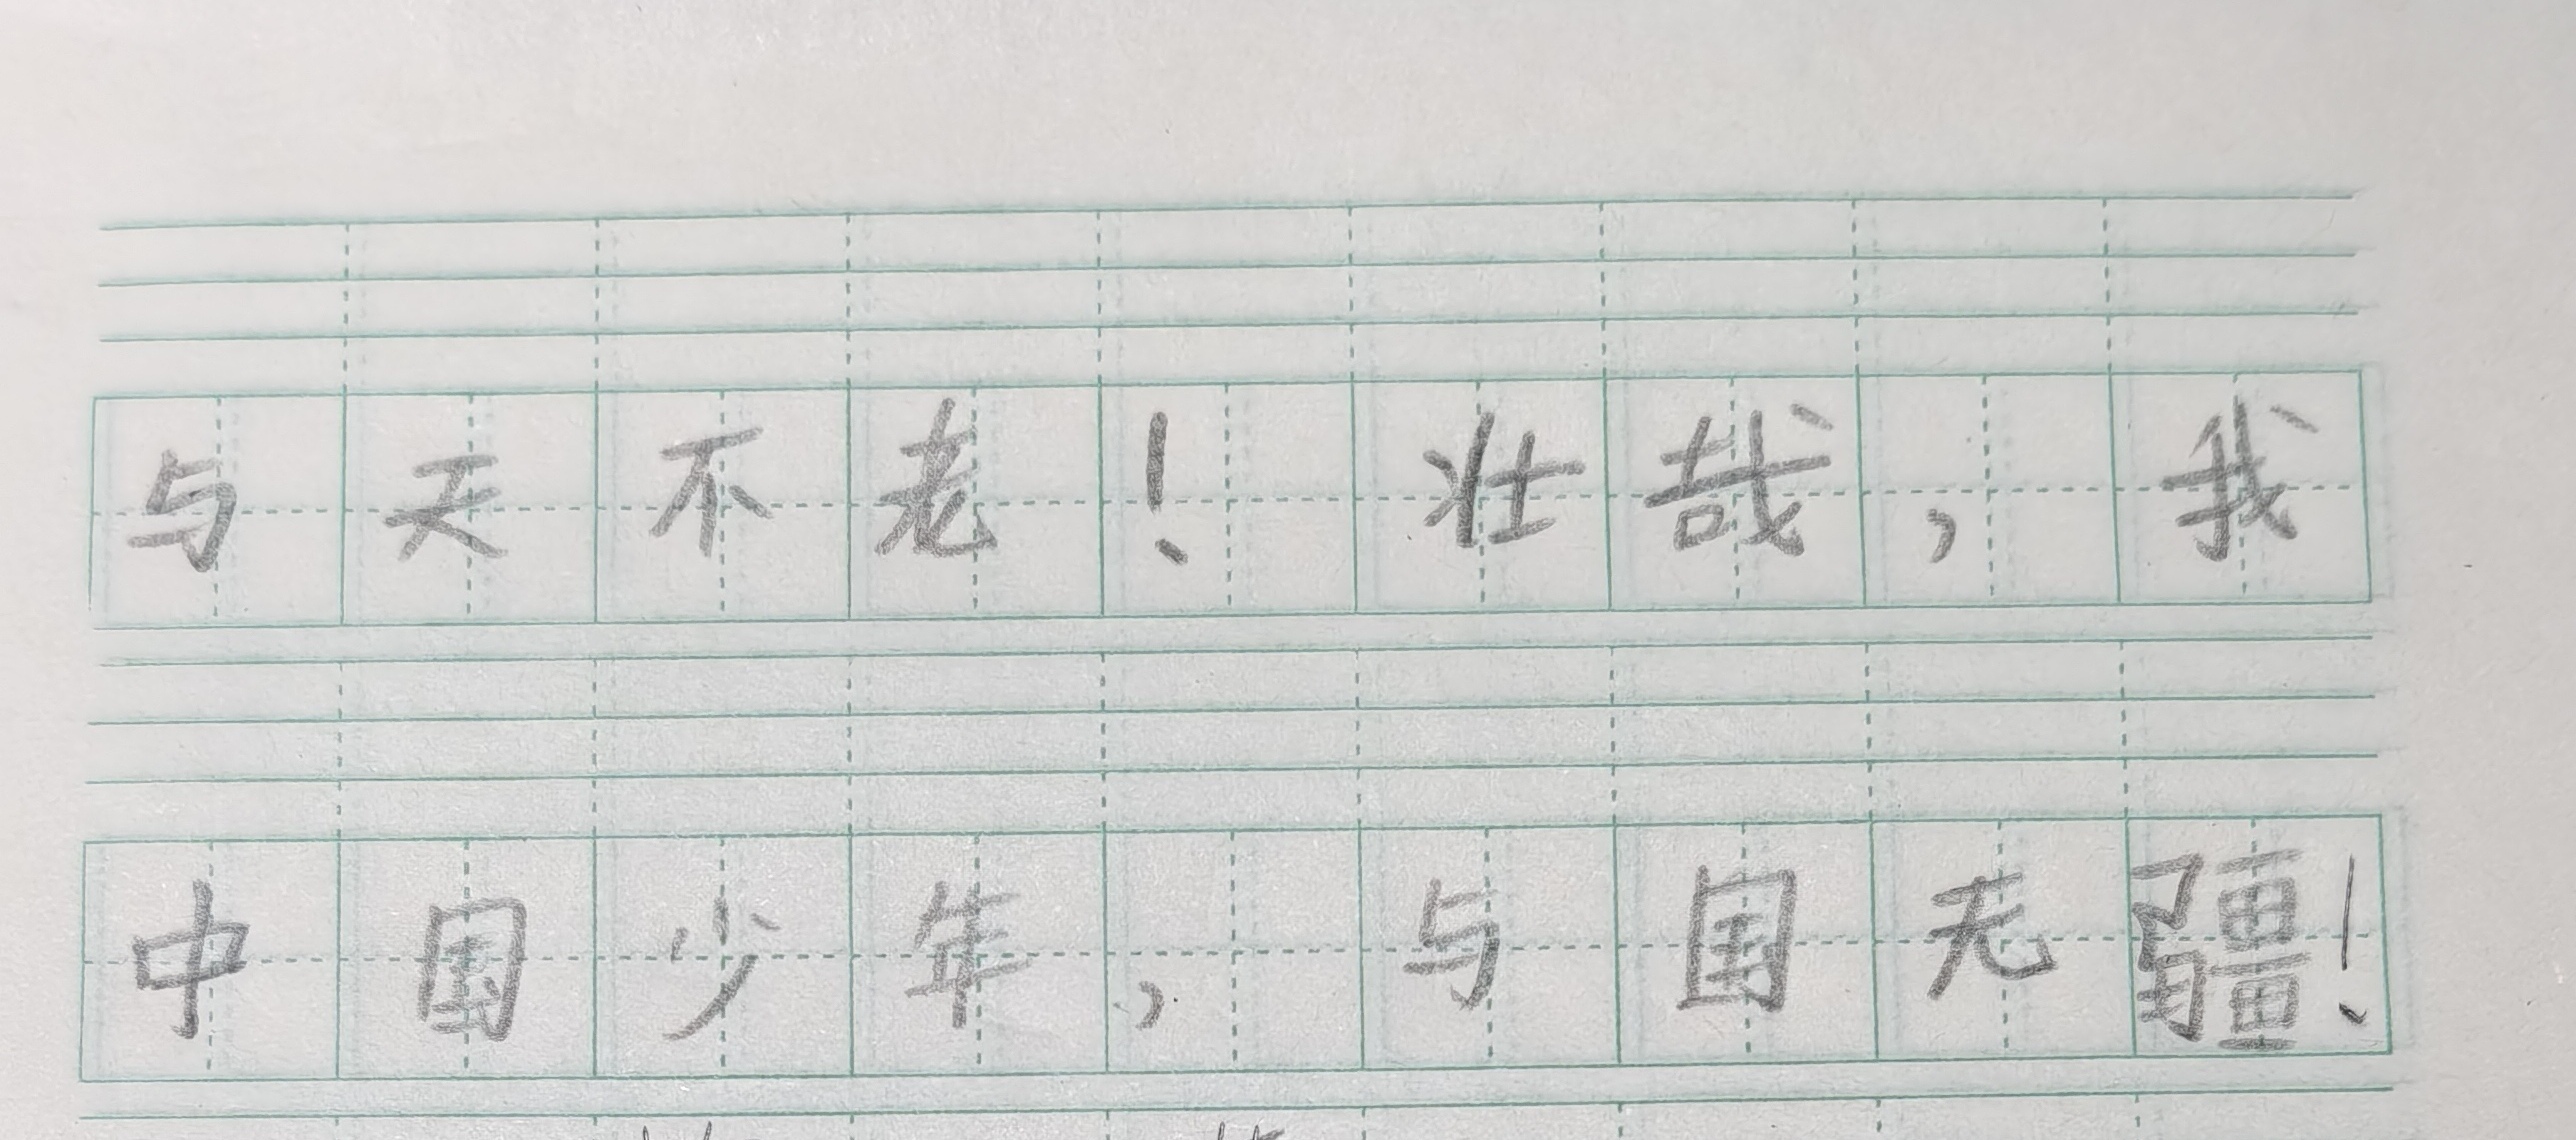 与天不老！壮哉，我
中国少年，与国无疆！